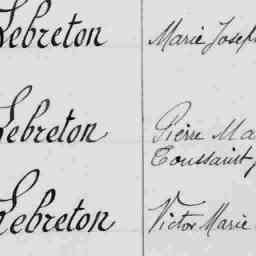 Lebreton Marie Josep
Lebreton Pierre Ma
Toussaint
Lebreton Victor Marie